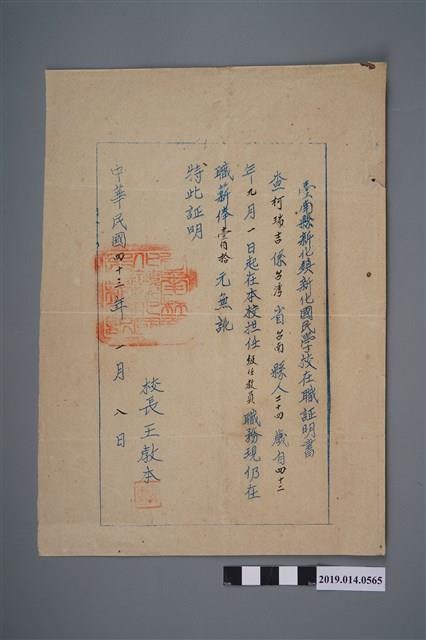 臺南縣新化鎮新化國民學校在職証明書
查柯瑞吉係台灣省台南縣人二十四歲自四十二
年九月一日起在本校担任級任教員職務現仍在
職薪俸壹百拾元無訛
特此証明
中華民國四十三年一月八日
校長王敦本
2019.014.0565